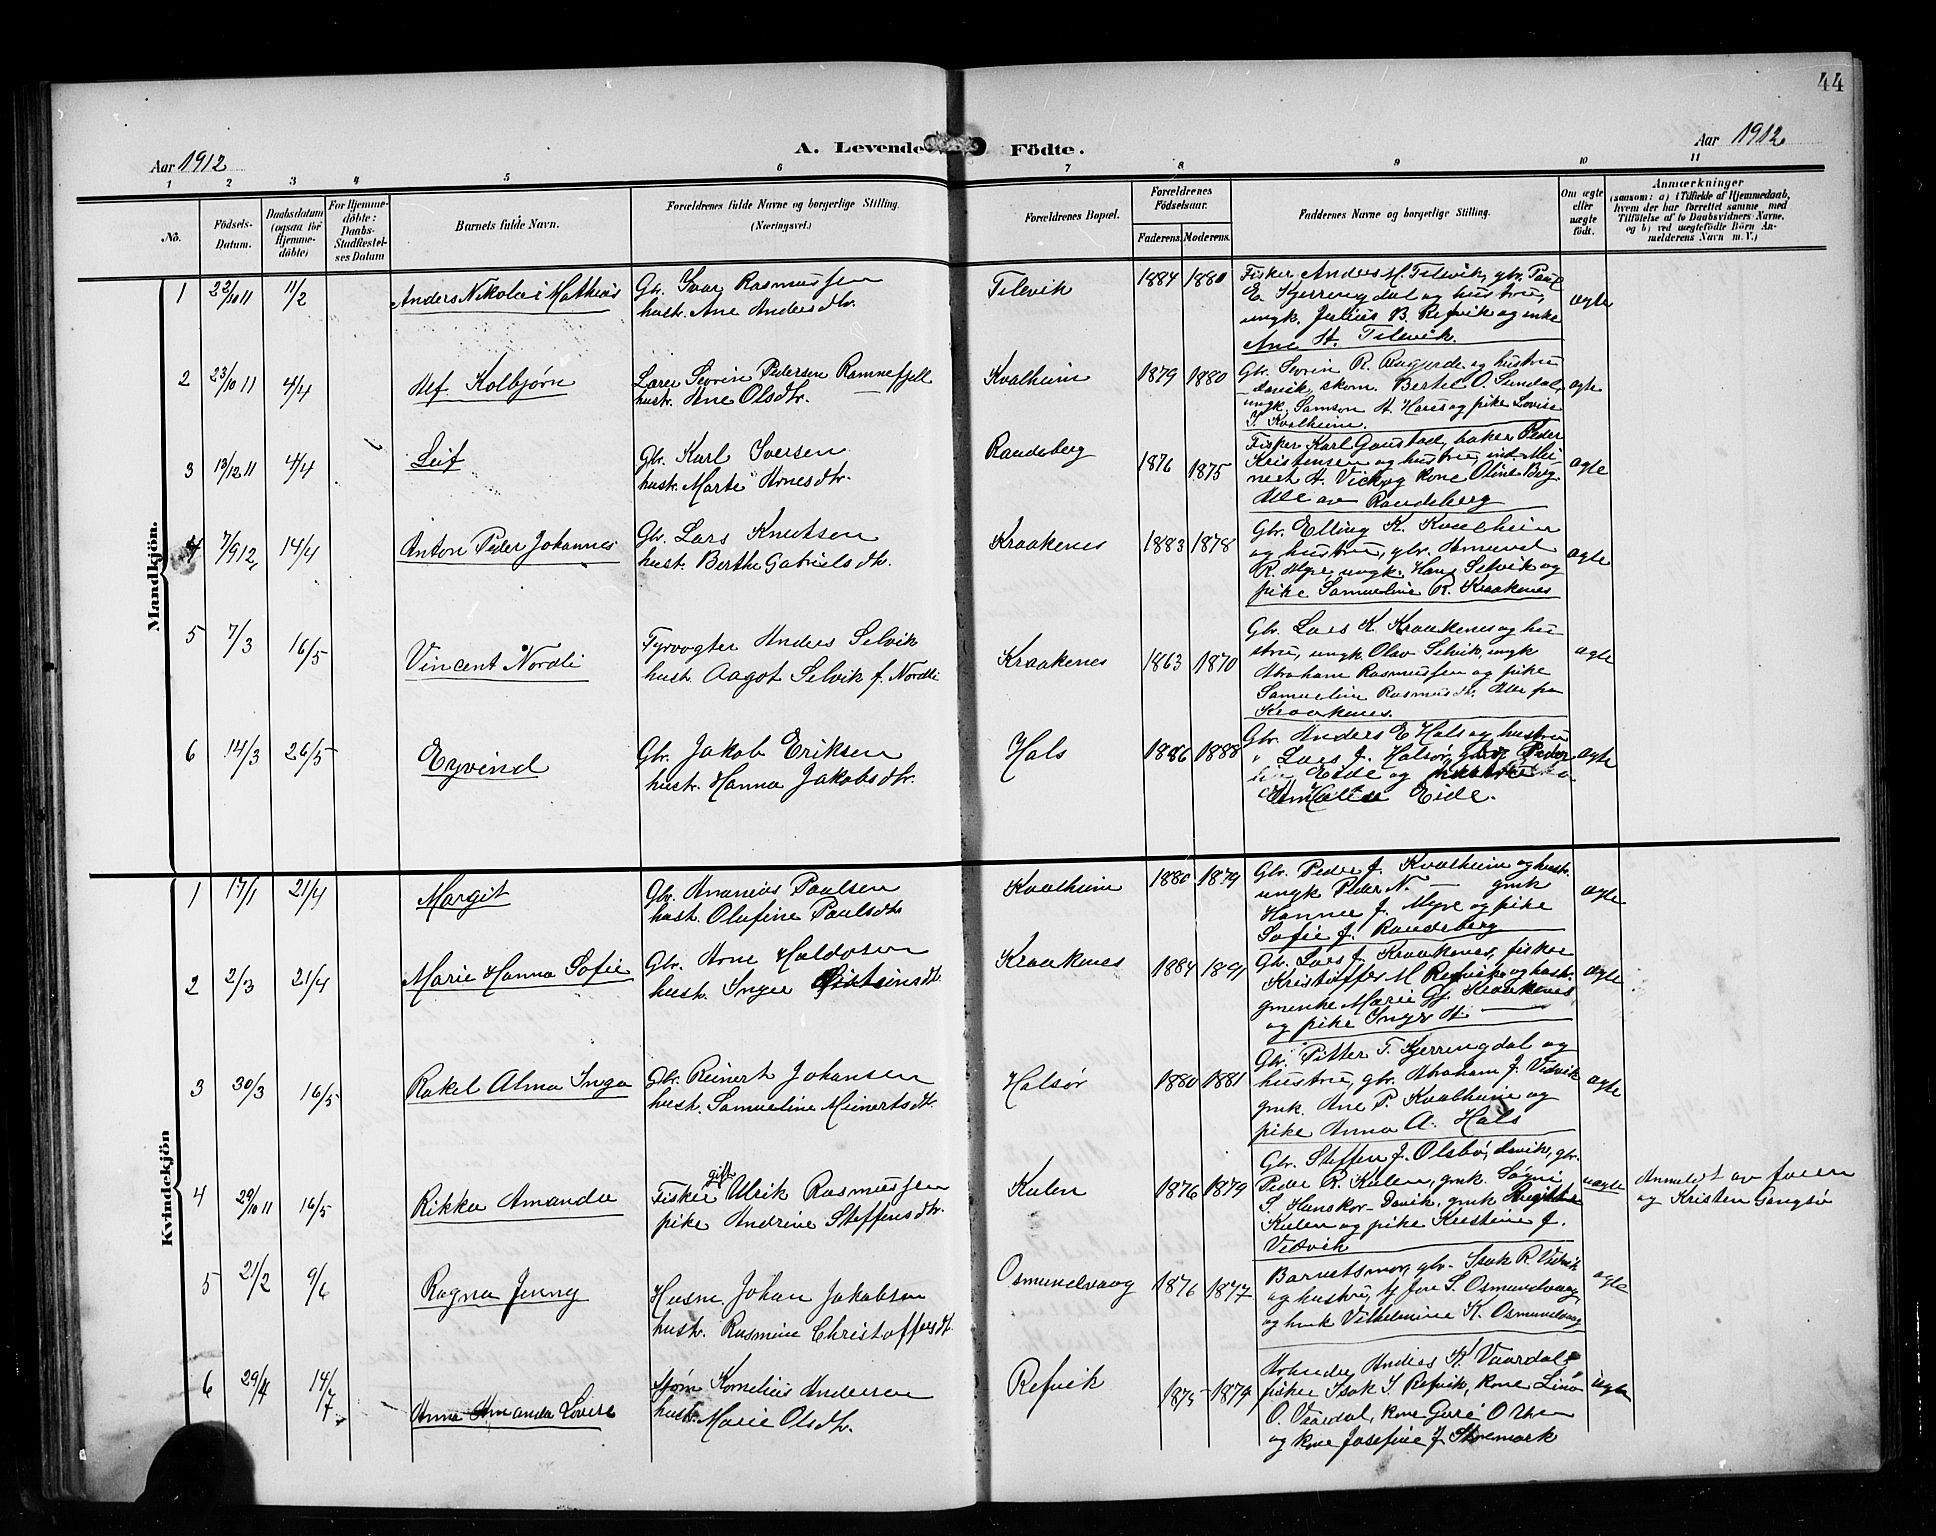 44
Aar 1912
A. Levende Födte.
Aar 1912
1 2 3 4 5 6 7 8 9 10 11
No.
Födsels-Datum.
Daabsdatum (ogsaa for Hjemme-döbte)
For Hjemme-döbte: Daabs-Stadfæstel-ses Datum
Barnets fulde Navn.
Forældrenes fulde Navne og borgerlige Stilling. (Næringsvei.)
Forældrenes Bopæl.
Forældrenes Födselsaar.
Faderens. Moderens.
Faddernes Navne og borgerlige Stilling.
Om ægte eller uægte födt.
Anmærkninger
(saasom: a) i Tilfælde af Hjemmedaab, hvem der har forrettet samme, med Tilföielse af to Daabsvidners Navne. og b) ved uægtefödte Börn An-melderens Navn m. V.)
Mandkjön.
1 22/10 11 11/2 Anders Nikolai Mathias
Gbr. Ivar Rasmussen
hustr. Ane Andersdtr.
Tilevik 1884 1880
Fisker Anders M. Tilevik, gbr. Paul
E. Kjerringdal og hustru,
ungk. Julius B. Refvik og enke
Ane H. Tilevik.
ægte
2 23/10 11 4/4 Alf Kolbjørn
Lærer Sevrin Pedersen Ramnefjell
hustr. Ane Olsdtr.
Kvalheim 1879 1880
Gbr. Sevrin R. og hustru
Davik, skom. Bertel O. Sundal,
ungk. Samson H. Haus og pike Lovise
J. Kvalheim.
ægte
3 13/12 11 4/4 Leif
Gbr. Karl Iversen
hustr. Marte Arnesdtr.
Raudeberg 1876 1875
Fisker Karl Gaustad, baker Peder
Kristensen og hustru, ind. Mei
nert H. Vick og kone Oline Berg
Alle av Raudeberg
ægte
4 7/9 12, 14/4 Anton Peder Johannes
Gbr. Lars Knutsen
hust. Berthe Gabrielsdtr.
Kraakenes 1883 1878
Gbr. Elling K. Kvalheim
og hustru, gbr. Samuel
R. Myre ungk. Hans Selvik og
pike Samueline R. Kraakenes
ægte
5 7/3 16/5 Vincent Nordli
Fyrvogter Anders Selvik
hust. Aagot Selvik f. Nordli
Kraakenes 1863 1870
Gbr. Lars K. Kraakenes og hu
stru, ungk. Olav Selvik, ungk
Abraham Rasmussen og pike
Samueline Rasmusdtr. Alle fra
Kraakenes.
ægte
6 14/3 26/5 Eyvind
Gbr. Jakob Eriksen
hustr. Hanna Jakobsdtr.
Hals 1886 1888
Gbr. Anders E Hals og hustru
" Lars J. Halsør, Peder
Eide og
Eide.
ægte
Kvindekjön
1 17/1 21/4 Margit
Gbr. Ananias Paulsen
hust. Olufine Paulsdtr
Kvalheim 1880 1879
Gbr. Peder J. Kvalheim og hust.
ungk Peder N. — gmk
Hanna J. Myre og pike
Sofie J. Raudeberg
ægte
2 2/3 21/4 Marie Hanna Sofie
Gbr. Arne Haldosen
hust. Inger
Kraakenes 1884 1891
Gbr. Lars J. Kraakenes, fisker
Kristoffer M Refvik og hust.
gmenke Marie Gj. Kraakenes
og pike Inger H. —
ægte
3 30/3 16/5 Rakel Alma Inga
Gbr. Reinert Johansen
hust. Samueline Meinertsdtr.
Halsør 1880 1881
Gbr. Pitter T. Kjerringdal og
hustru, gbr. Abraham J. Vedvik
gmk. Ane P. Kvalheim og
pike Anna A. Hals
ægte
4 29/10 11 16/5 Rikka Amanda
gift
Fisker Ulrik Rasmussen
pike Andrine Steffensdtr.
Kulen 1876 1879
Gbr. Steffen J. Olsbø, Davik, gbr.
Peder R. Kulen, gmk. Søgni
S. Hanskor-Davik, gmk
Kulen og pike Kristine J.
Vedvik
uægte
Anmeldt av faren
og Kristen Gangsø
5 21/2 9/6 Ragna Jenny
Husm Johan Jakobsen
hustr. Rasmine Christoffersdtr.
Osmundvaag 1876 1877
Barnets mor, gbr. Isak R. Vedvik
og hustru, tj Jon S. Osmundvaag,
og enk Vilhelmine K. Osmundvaag
ægte
6 29/4 14/7 Anna Amanda Lovise
Strøm Kornelius Andersen
hust. Marie Olsdtr.
Refvik 1875 1874
Anders K. Vaardal
fisker Isak S. Refvik, kone Lina
O. Vaardal, kone Guri
og kone Josefine J
ægte